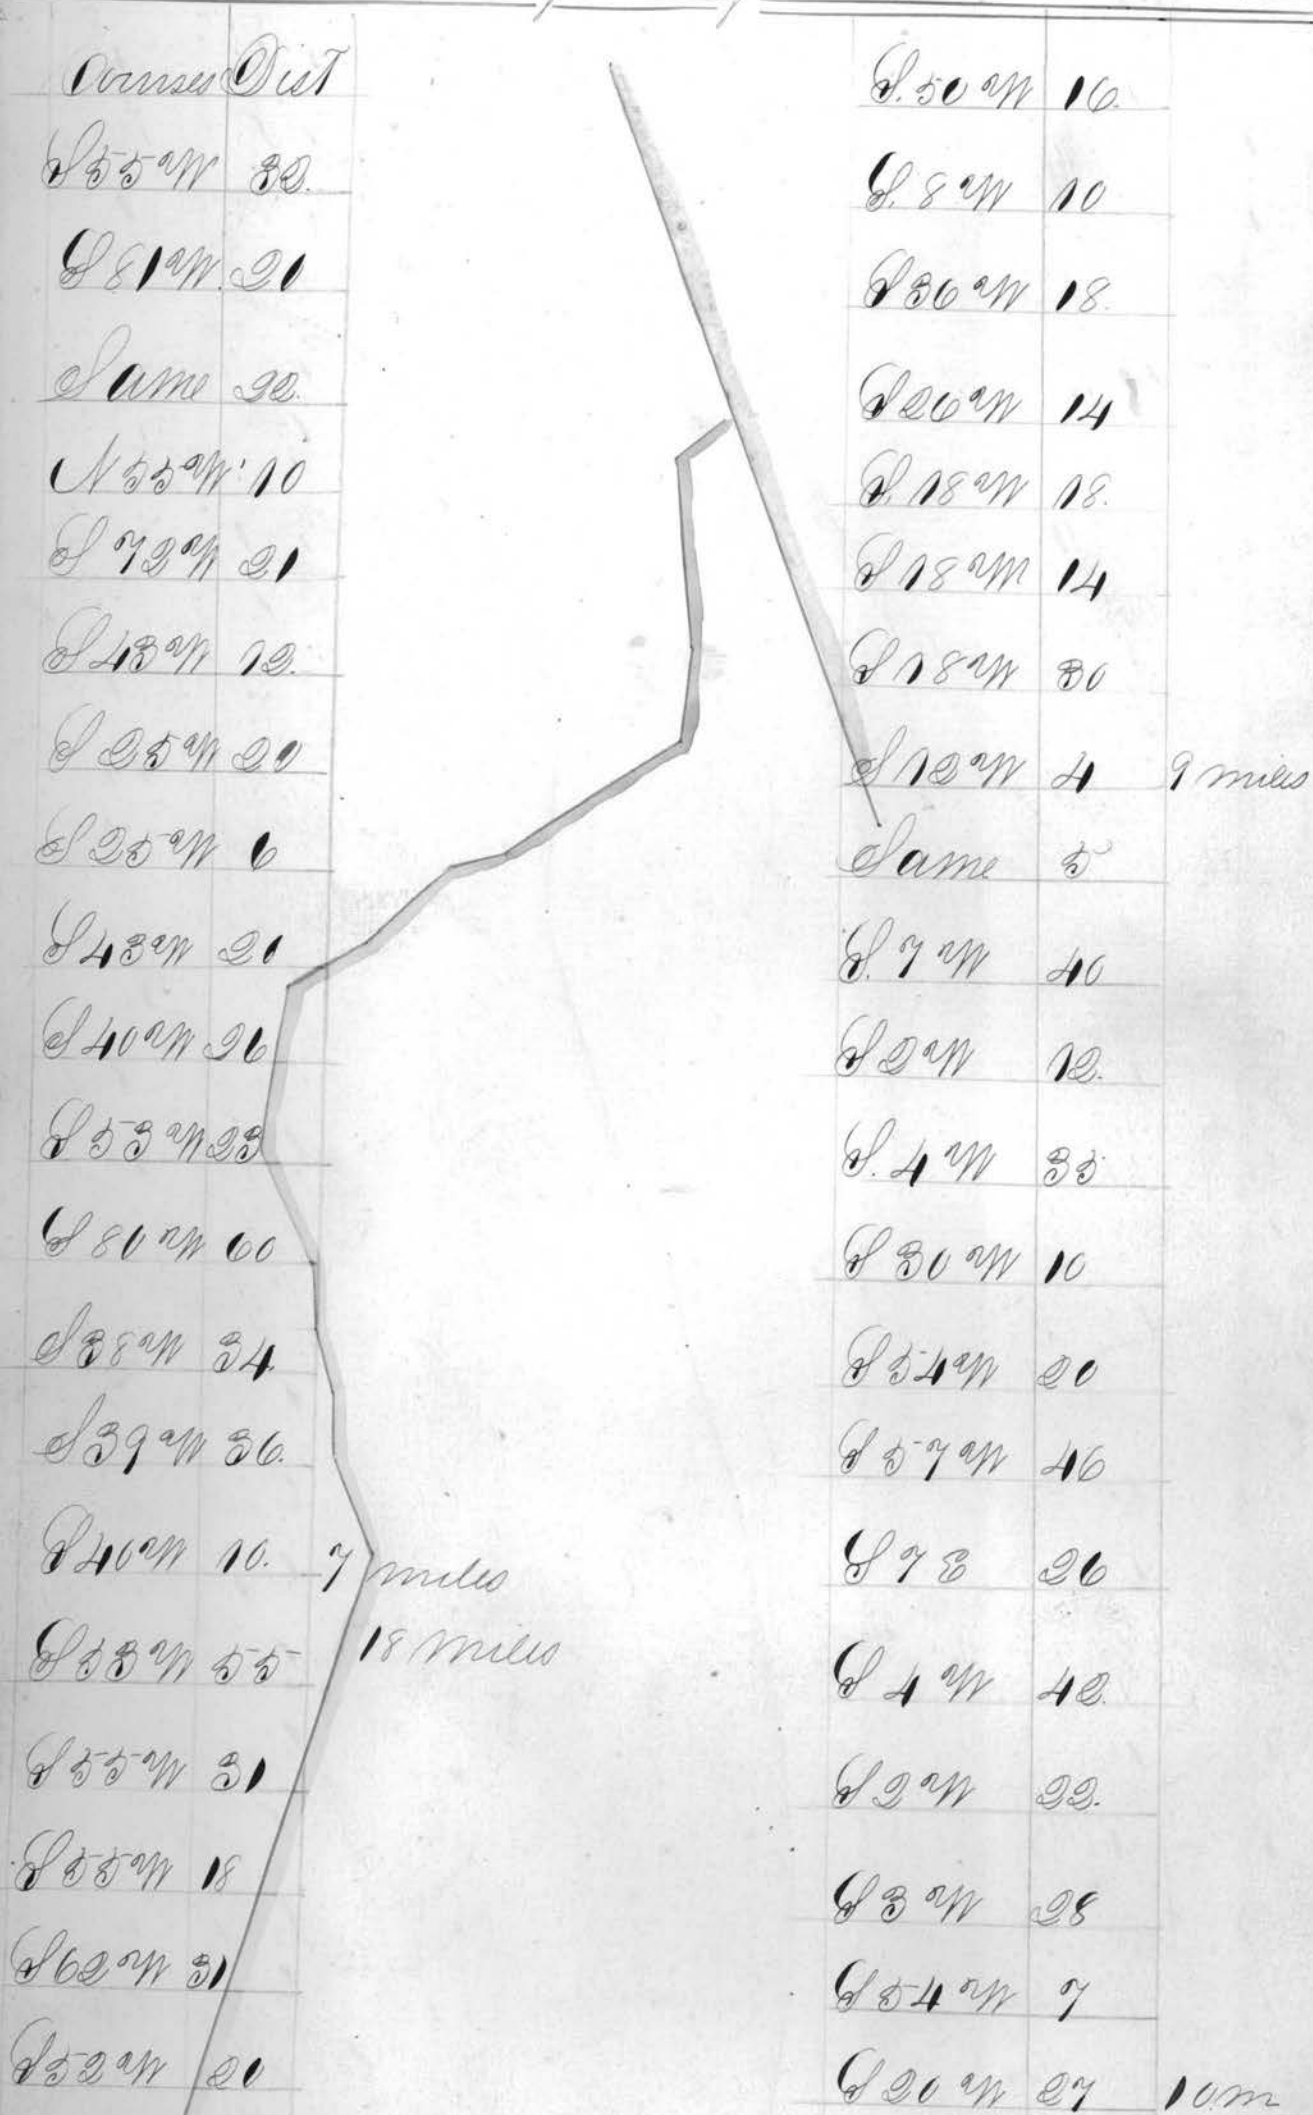 Courses Dist
S 55 W 32.
S 81 W. 20
Same 22.
N 55 W. 10
S 72 W 21
S 43 W 12.
S 25 W 20
S 25 W 6
S 43 W 20
S 40 W 26
S 53 W 23
S 80 W 60
S 38 W 34.
S 39 W 36.
S 40 W 10. 7 miles
18 Miles
S 53 W 55
S 55 W 31
S 55 W 18
S 62 W 31
S 52 W 20
S. 50 W 16.
S. 8 W 10
S 36 W 18.
S 26 W 14
S. 18 W 18.
S 18 W 14
S 18 W 30
S 12 W 4 9 miles
Same 5
S. 7 W 40
S 2 W 12.
S. 4 W 35
S 30 W 10
S 54 W 20
S 57 W 46
S 7 E 26
S 4 W 42.
S 2 W 22.
S 3 W 28
S 54 W 7
S 20 W 27 10 m